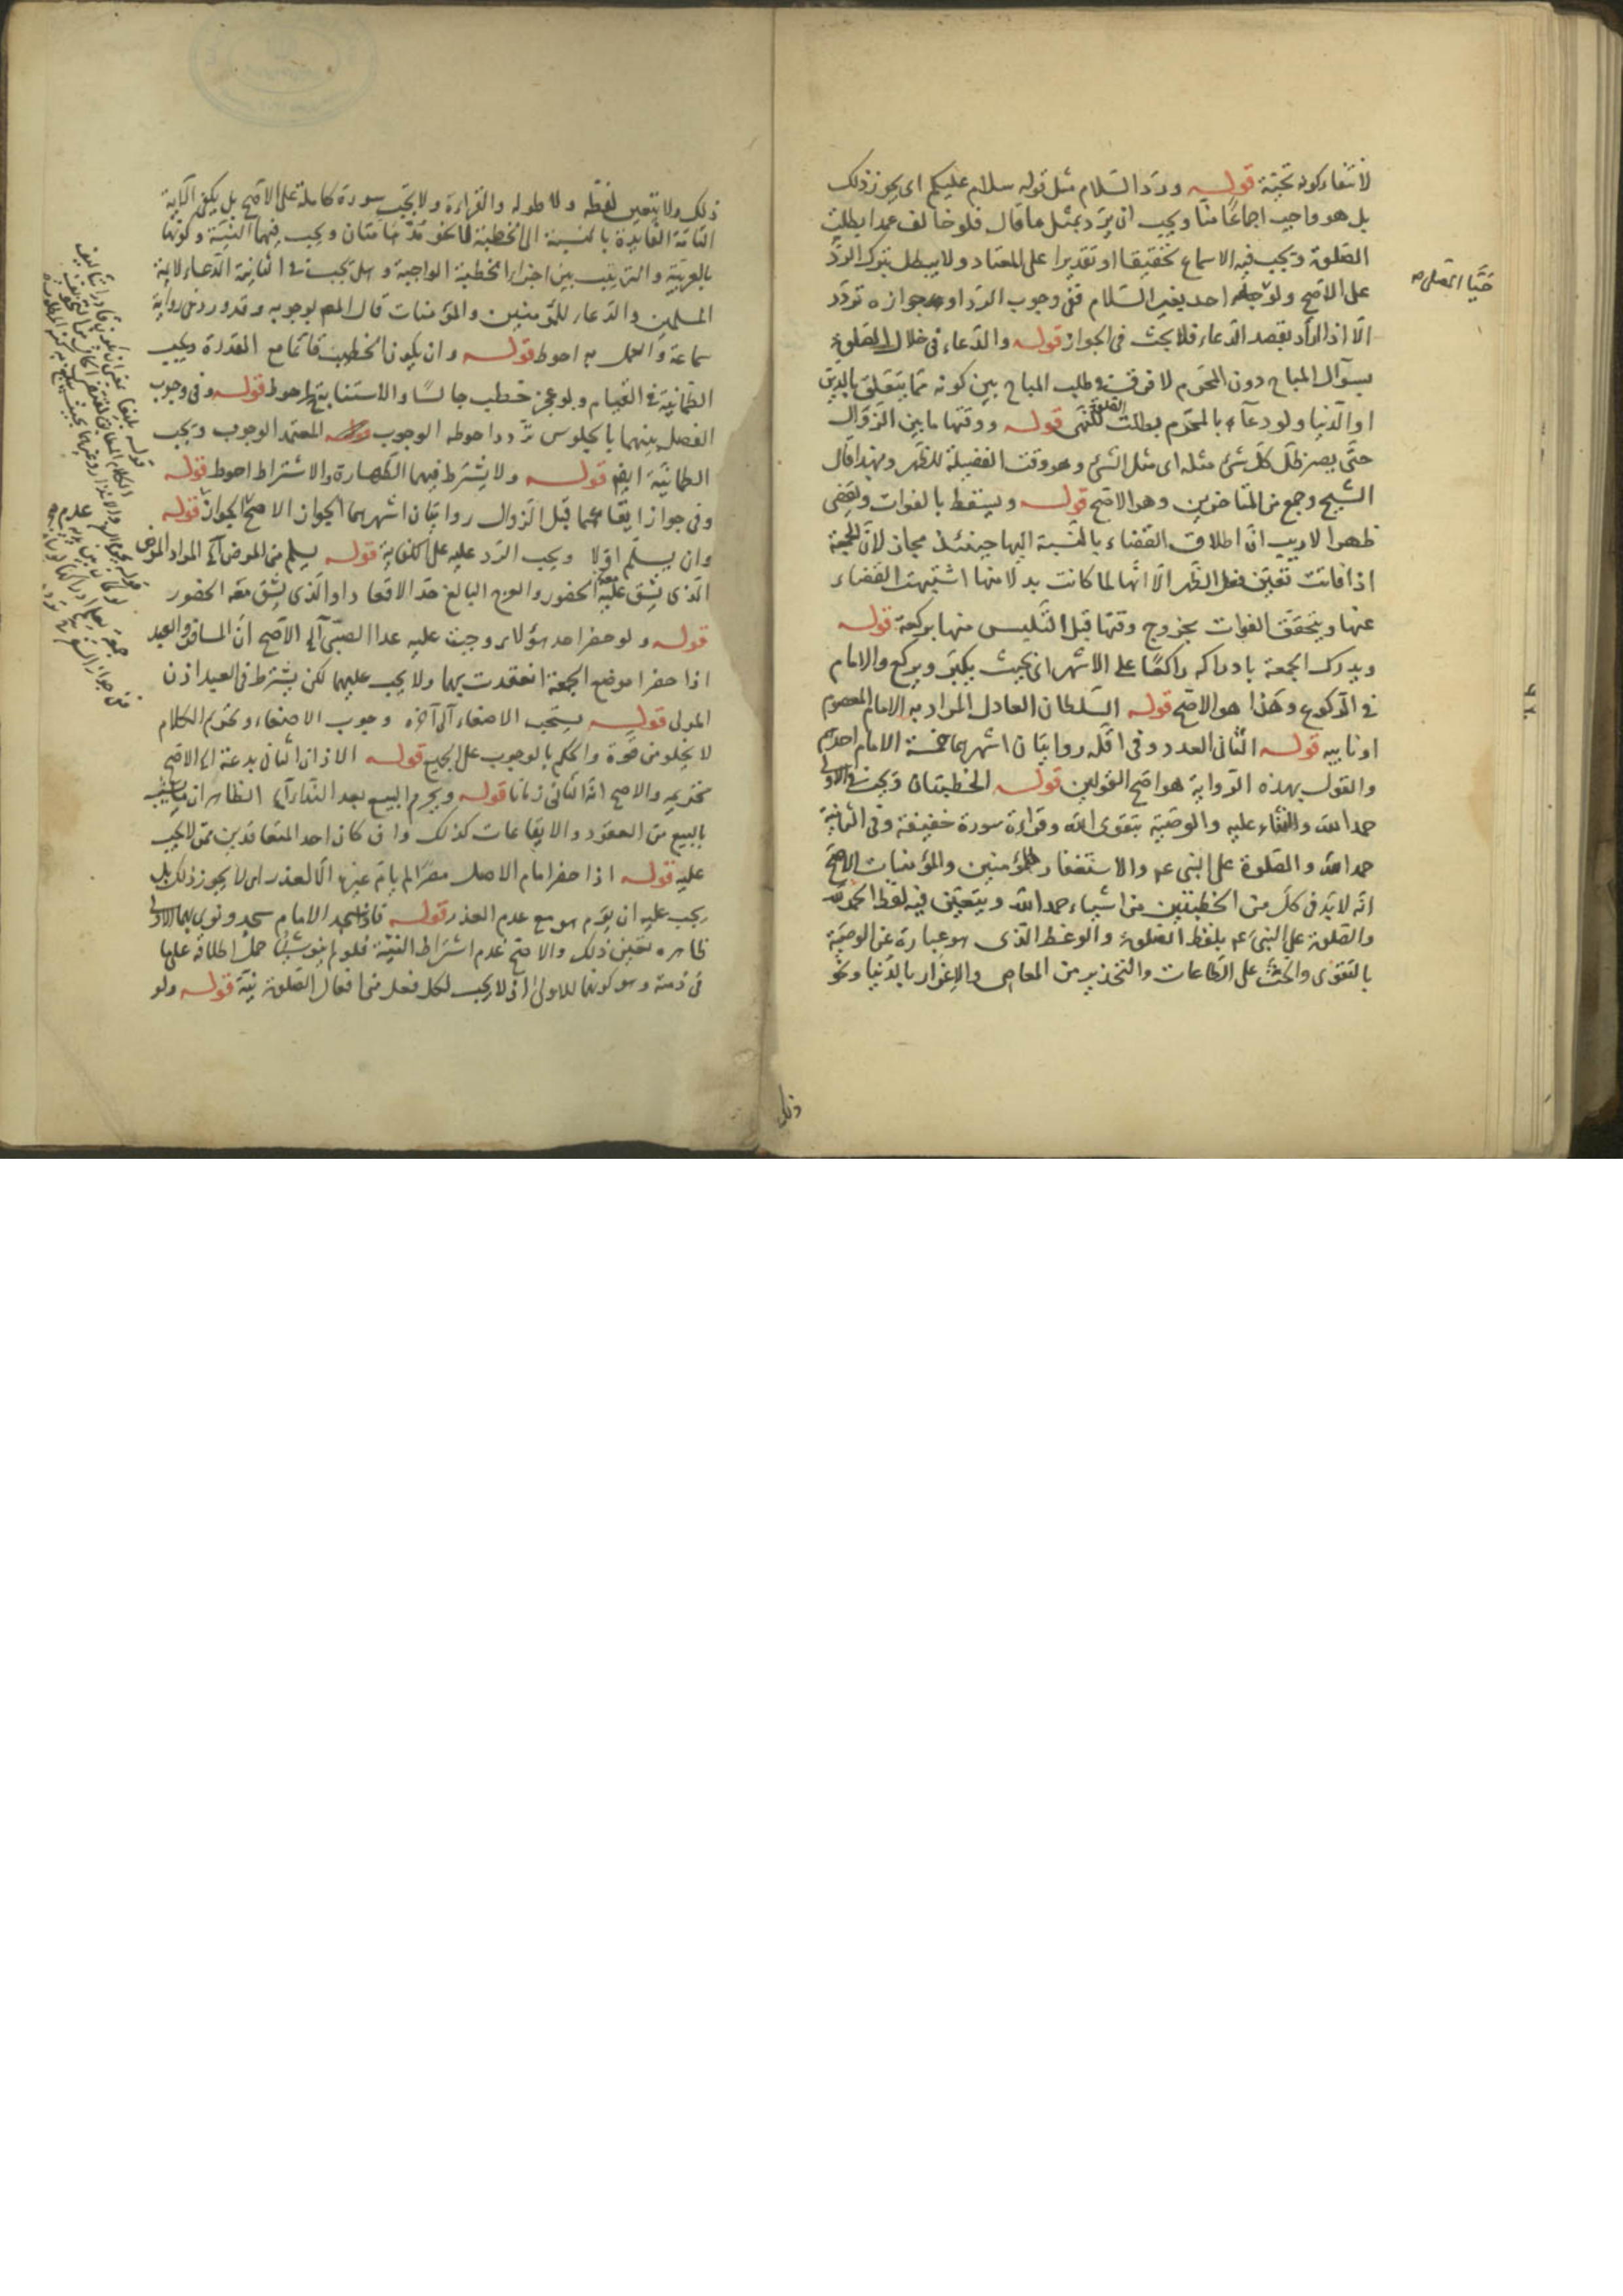 لانتفاء كونه تحية قوله ورد السلام مثل قوله سلام عليكم اى يجوز ذلك
بل هو واجب اجماعا منا ويجب ان يرد بمثل ما قال فلو خالف عمدا بطلت
الصلوة ويجب فيه الاسماع تحقيقا او تقديرا على المعتاد ولا يبطل بترك الرد
على الاصح ولو احد بغير السلام ففى وجوب الرد او جوازه تردد
الا اذا اراد بقصد الدعاء فلا بحث فى الجواز قوله والدعاء فى خلال الصلوة
بسؤال المباح دون المحرم لا فرق فى طلب المباح بين كونه مما يتعلق بالدين
او الدنيا ولو دعا بالمحرم بطلت الصلوة للنهى قوله ووقتها ما بين الزوال
حتى يصير ظل كل شئ مثله اى مثل الشئ وهو وقت الفضيلة للظهر وبهذا قال
الشيخ وجمع من المتاخرين وهو الاصح قوله ويسقط بالفوات وتقضى
ظهرا لا ريب ان اطلاق القضاء بالنسبة اليها حينئذ مجاز لان الجمعة
اذا فاتت تعين فعل الظهر الا انها لما كانت بدلا منها اشتبهت القضاء
عنها ويتحقق الفوات بخروج وقتها قبل التلبس منها بركعة قوله
ويدرك الجمعة بادراكه راكعا على الاشهر اى بحيث يكبر ويركع والامام
فى الركوع وهذا هو الاصح قوله السلطان العادل المراد به الامام المعصوم
او نايبه قوله الثانى العدد وفى اقله روايتان اشهرهما خمسة الامام احدهم
والقول بهذه الرواية هو اصح القولين قوله الخطبتان ويجب فى الاولى
حمد الله والثناء عليه والوصية بتقوى الله وقراءة سورة خفيفة وفى الثانية
حمد الله والصلوة على النبى عم والاستغفار للمؤمنين والمؤمنات الاصح
انه لا بد فى كل من الخطبتين من اشياء حمد الله ويتعين فيه لفظ الحمد لله
والصلوة على النبى عم بلفظ الصلوة والوعظ الذى هو عبارة عن الوصية
بالتقوى والحث على الطاعات والتحذير من المعاصى والاغترار بالدنيا ونحو
ذلك
ذلك ولا يتعين لفظه ولا طوله والقراءة ولا يجب سورة كاملة على الاصح بل يكفى الآية
التامة الفايدة بالنسبة الى الخطبة لا نحو مدهامتان ويجب فيها النية وكونها
بالعربية والترتيب بين اجزاء الخطبة الواجبة وهل يجب فى الثانية الدعاء لائمة
المسلمين والدعاء للمؤمنين والمؤمنات قال المص بوجوبه وقد ورد فى رواية
سماعة والعمل به احوط قوله وان يكون الخطيب قائما مع القدرة ويجب
الطمانية فى القيام ولو عجز خطب جالسا والاستنابة احوط قوله وفى وجوب
الفصل بينهما بالجلوس تردد احوطه الوجوب المعتمد الوجوب ويجب
الطمانية ايضا قوله ولا يشترط فيهما الطهارة والاشتراط احوط قوله
وفى جواز ايقاعهما قبل الزوال روايتان اشهرهما الجواز الاصح الجواز قوله
وان يسلم اولا ويجب الرد عليه على الكفاية قوله يسلم من المرض الخ المراد المرض
الذى يشق عليه الحضور والعرج البالغ حد الاقعاد او الذى يشق معه الحضور
قوله ولو حضر احد هؤلاء وجبت عليه عدا الصبى الخ الاصح ان المسافر والعبد
اذا حضرا موضع الجمعة انعقدت بهما ولا يجب عليهما لكن يشترط فى العبد اذن
المولى قوله يستحب الاصغاء الى آخره وجوب الاصغاء وتحريم الكلام
لا يخلو من قوة والحكم بالوجوب على الجميع قوله الاذان الثانى بدعة الاصح
تحريمه والاصح انه الثانى زمانا قوله ويحرم البيع بعد النداء الظاهر ان
بالبيع من العقود والايقاعات كذلك وان كان احد المتعاقدين ممن لا يجب
عليه قوله اذا حضر امام الاصل مصرا لم يام غيره الا لعذر اى لا يجوز ذلك بل
يجب عليه ان يؤم هو مع عدم العذر قوله فاذا سجد الامام سجد ونوى بهما الاولى
ظاهره تعين ذلك والاصح عدم اشتراط النية فلو لم ينو شيئا حمل اطلاقه على ما
فى ذمته وهو كونهما للاولى اذ لا يجب لكل فعل من افعال الصلوة نية قوله ولو